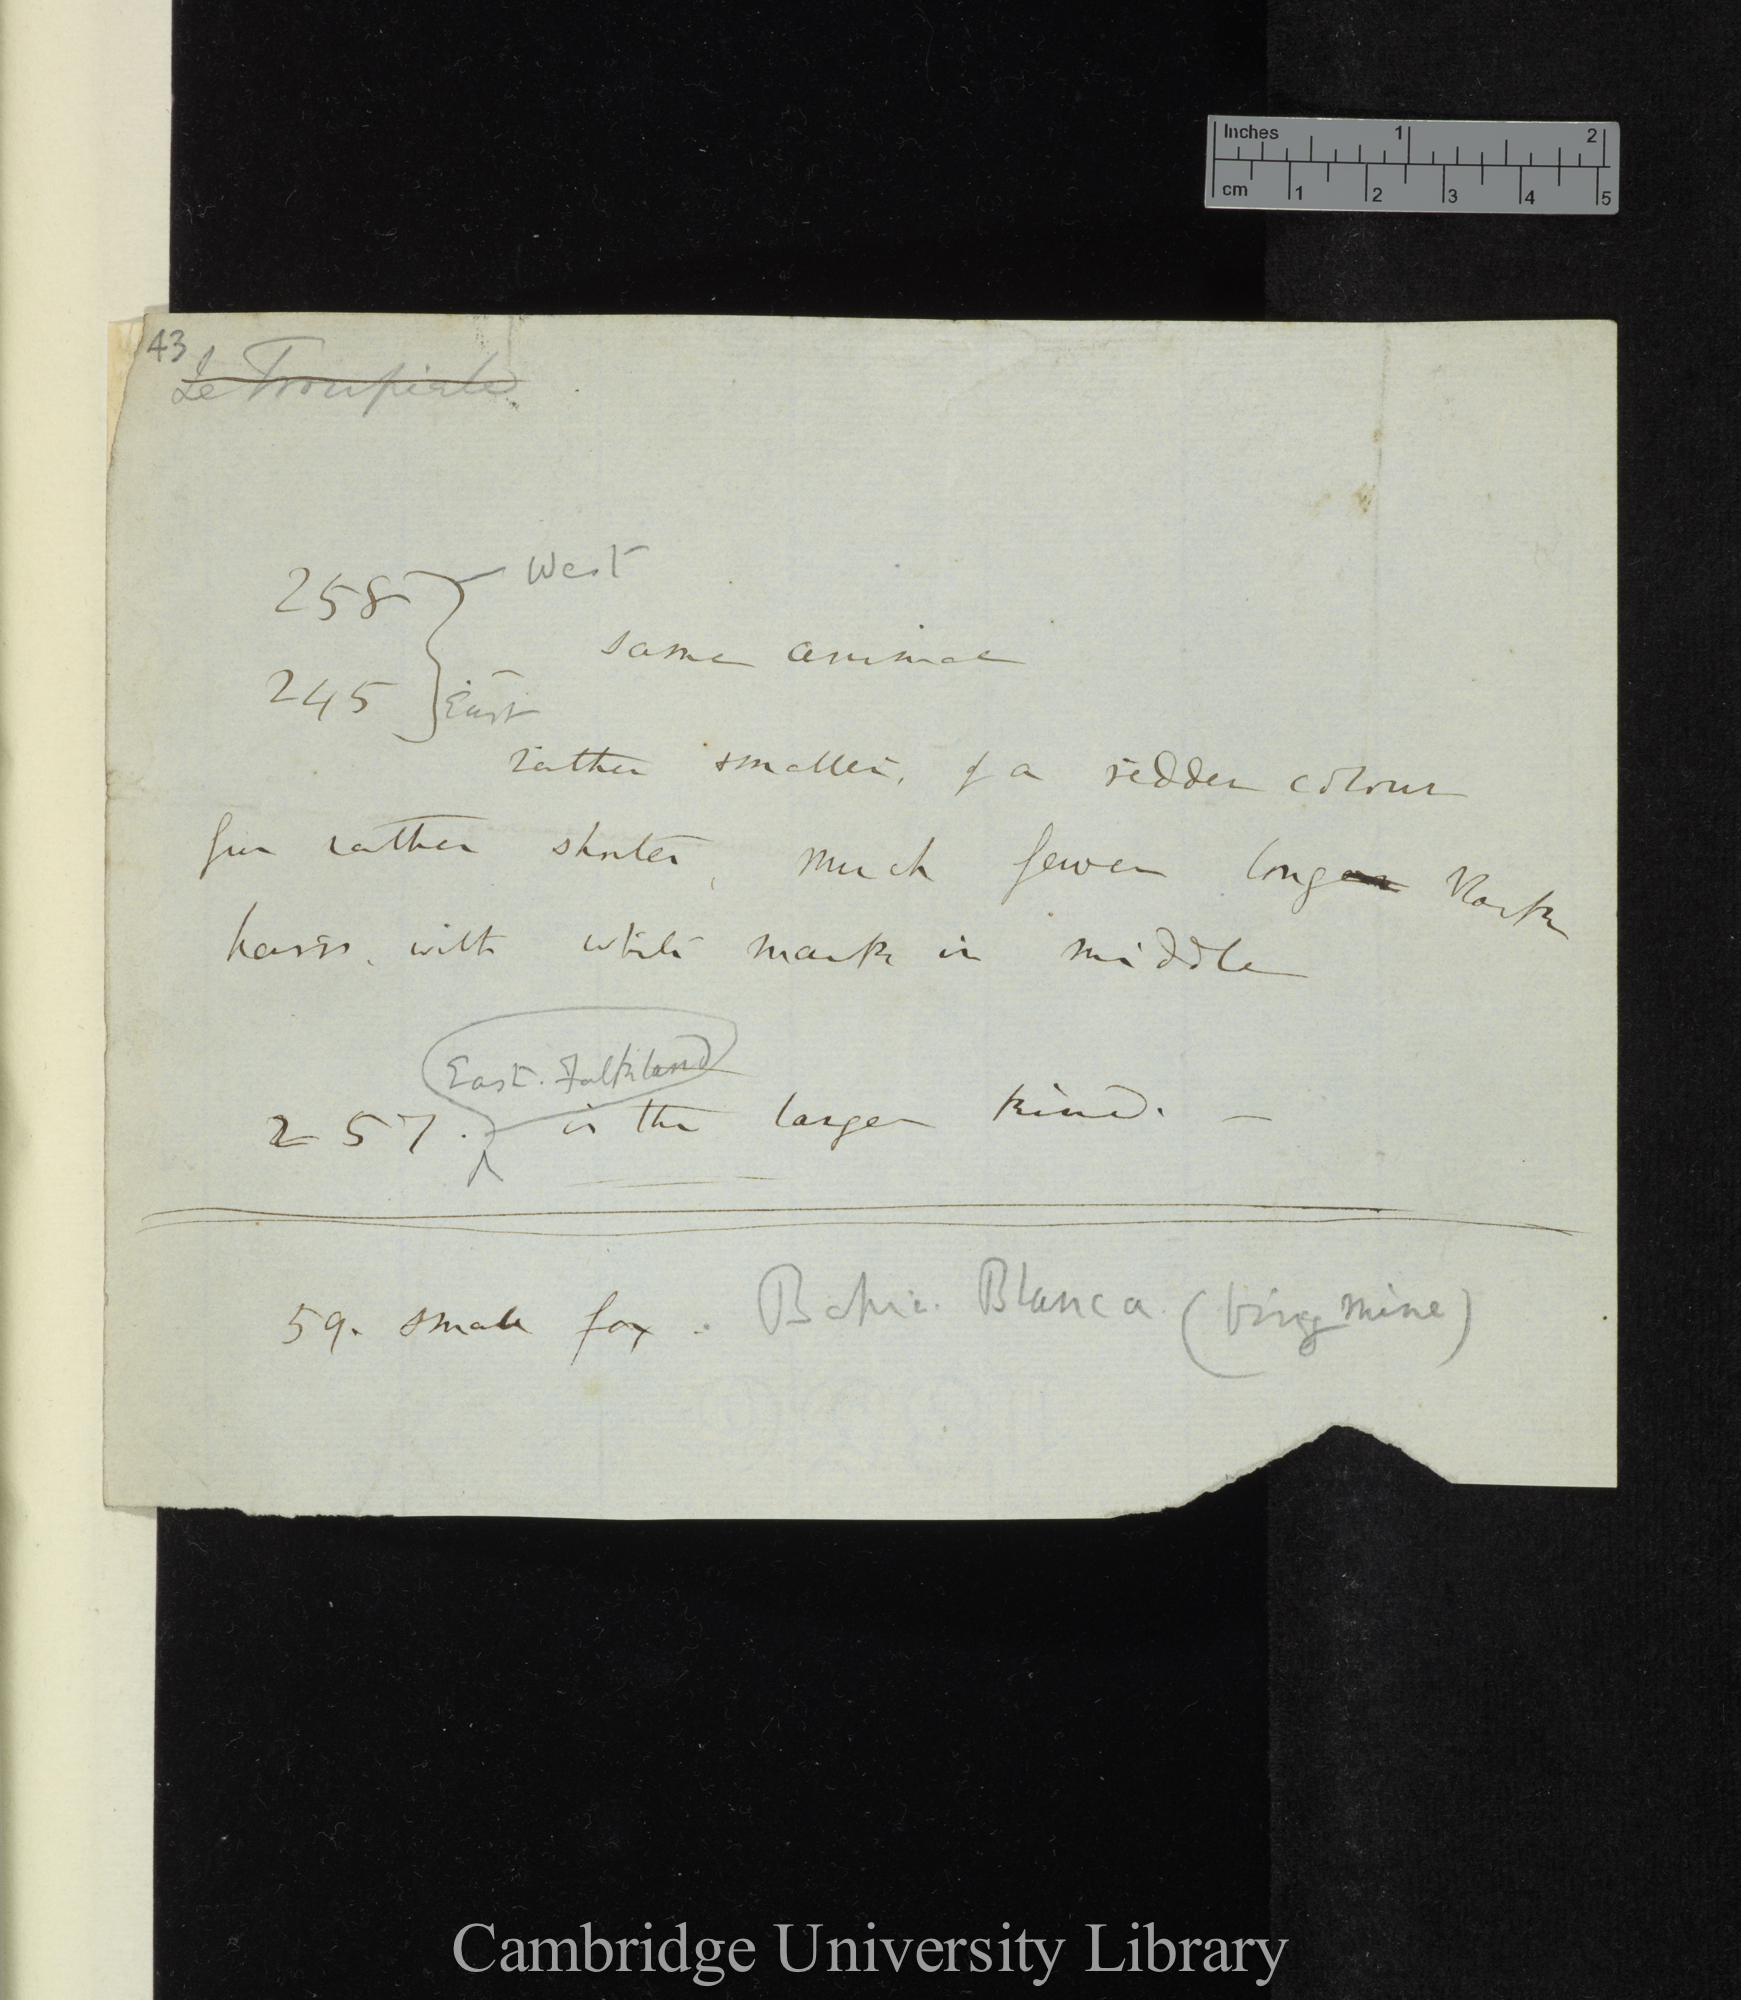 Inches 1 2
cm 1 2 3 4 5
43
Le Troupiale
258 West
same animal
245 East
rather smaller, of a redder colour
fur rather shorter, much fewer long black
hairs, with white mark in middle
East. Falkland
257. is the larger kind. —
59. small fox. Bahia. Blanca (bring mine)
Cambridge University Library